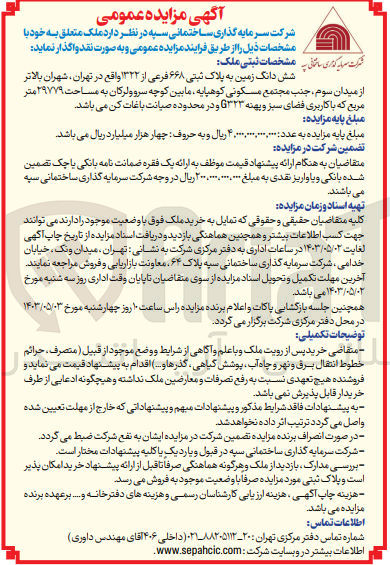 آگهی مزایده عمومی
شرکت سرمایه گذاری ساختمانی سپه در نظر دارد ملک متعلق به خود با
مشخصات ذیل را از طریق فرایند مزایده عمومی و به صورت نقد واگذار نماید:
شرکت سرمایه گذاری ساختمانی سپه
مشخصات ثبتی ملک:
شش دانگ زمین به پلاک ثبتی ۶۶۸ فرعی از ۱۳۲۲ واقع در تهران، شهران بالاتر
از میدان سوم، جنب مجتمع مسکونی کوهپایه، ما بین کوچه سرو و لرکان به مساحت ۲۹۷۷۹ متر
مربع که با کاربری فضای سبز و پهنه G323 و در محدوده صیانت باغات کن می باشد.
مبلغ پایه مزایده:
مبلغ پایه مزایده به عدد: ۴,۰۰۰,۰۰۰,۰۰۰,۰۰۰ ریال و به حروف: چهار هزار میلیارد ریال می باشد.
تضمین شرکت در مزایده:
متقاضیان به هنگام ارائه پیشنهاد قیمت موظف به ارائه یک فقره ضمانت نامه بانکی یا چک تضمین
شده بانکی و یا واریز نقدی به مبلغ ۲۰۰,۰۰۰,۰۰۰,۰۰۰ ریال در وجه شرکت سرمایه گذاری ساختمانی سپه
می باشند.
تهیه اسناد و زمان مزایده:
کلیه متقاضیان حقیقی و حقوقی که تمایل به خرید ملک فوق با وضعیت موجود را دارند می توانند
جهت کسب اطلاعات بیشتر و همچنین هماهنگی بازدید و دریافت اسناد مزایده از تاریخ چاپ آگهی
لغایت ۱۴۰۳/۰۵/۰۲ در ساعات اداری به دفتر مرکزی شرکت به نشانی: تهران، میدان ونک، خیابان
خدامی، شرکت سرمایه گذاری ساختمانی سپه پلاک ۶۴، معاونت بازاریابی و فروش مراجعه نمایند.
آخرین مهلت تکمیل و تحویل اسناد مزایده از سوی متقاضیان تا پایان وقت اداری روز سه شنبه مورخ
۱۴۰۳/۰۵/۰۲ می باشد.
همچنین جلسه بازگشایی پاکات و اعلام برنده مزایده راس ساعت ۱۰ روز چهارشنبه مورخ ۱۴۰۳/۰۵/۰۳
در محل دفتر مرکزی شرکت برگزار می گردد.
توضیحات تکمیلی:
- متقاضی خرید پس از رویت ملک و با علم و آگاهی از شرایط و وضع موجود از قبیل (متصرف، حرائم
خطوط انتقال برق و نهر و چاه آب، پوشش گیاهی، گذرها و...) اقدام به پیشنهاد قیمت می نماید و
فروشنده هیچ تعهدی نسبت به رفع تصرفات و معارضین ملک نداشته و هیچگونه ادعایی از طرف
خریدار قابل پذیرش نمی باشد.
- به پیشنهادات فاقد شرایط مذکور و پیشنهادات مبهم و پیشنهاداتی که خارج از مهلت تعیین شده
واصل می گردد ترتیب اثر داده نخواهد شد.
- در صورت انصراف برنده مزایده تضمین شرکت در مزایده ایشان به نفع شرکت ضبط می گردد.
- شرکت سرمایه گذاری ساختمانی سپه در قبول و یا رد یک یا کلیه پیشنهادات مختار است.
- بررسی مدارک، بازدید از ملک و هرگونه هماهنگی صرفا تا قبل از ارائه پیشنهاد خرید امکان پذیر
است و پلاک ثبتی مورد مزایده صرفا با وضعیت موجود به فروش می رسد.
- هزینه چاپ آگهی، هزینه ارزیابی کارشناسان رسمی و هزینه های دفترخانه و.... بر عهده برنده
مزایده می باشد.
اطلاعات تماس:
شماره تماس دفتر مرکزی تهران: ۲۰-۸۸۲۰۵۱۱۲-۰۲۱ (داخلی ۴۰۶ آقای مهندس داوری)
اطلاعات بیشتر در وبسایت شرکت: www.sepahcic.com